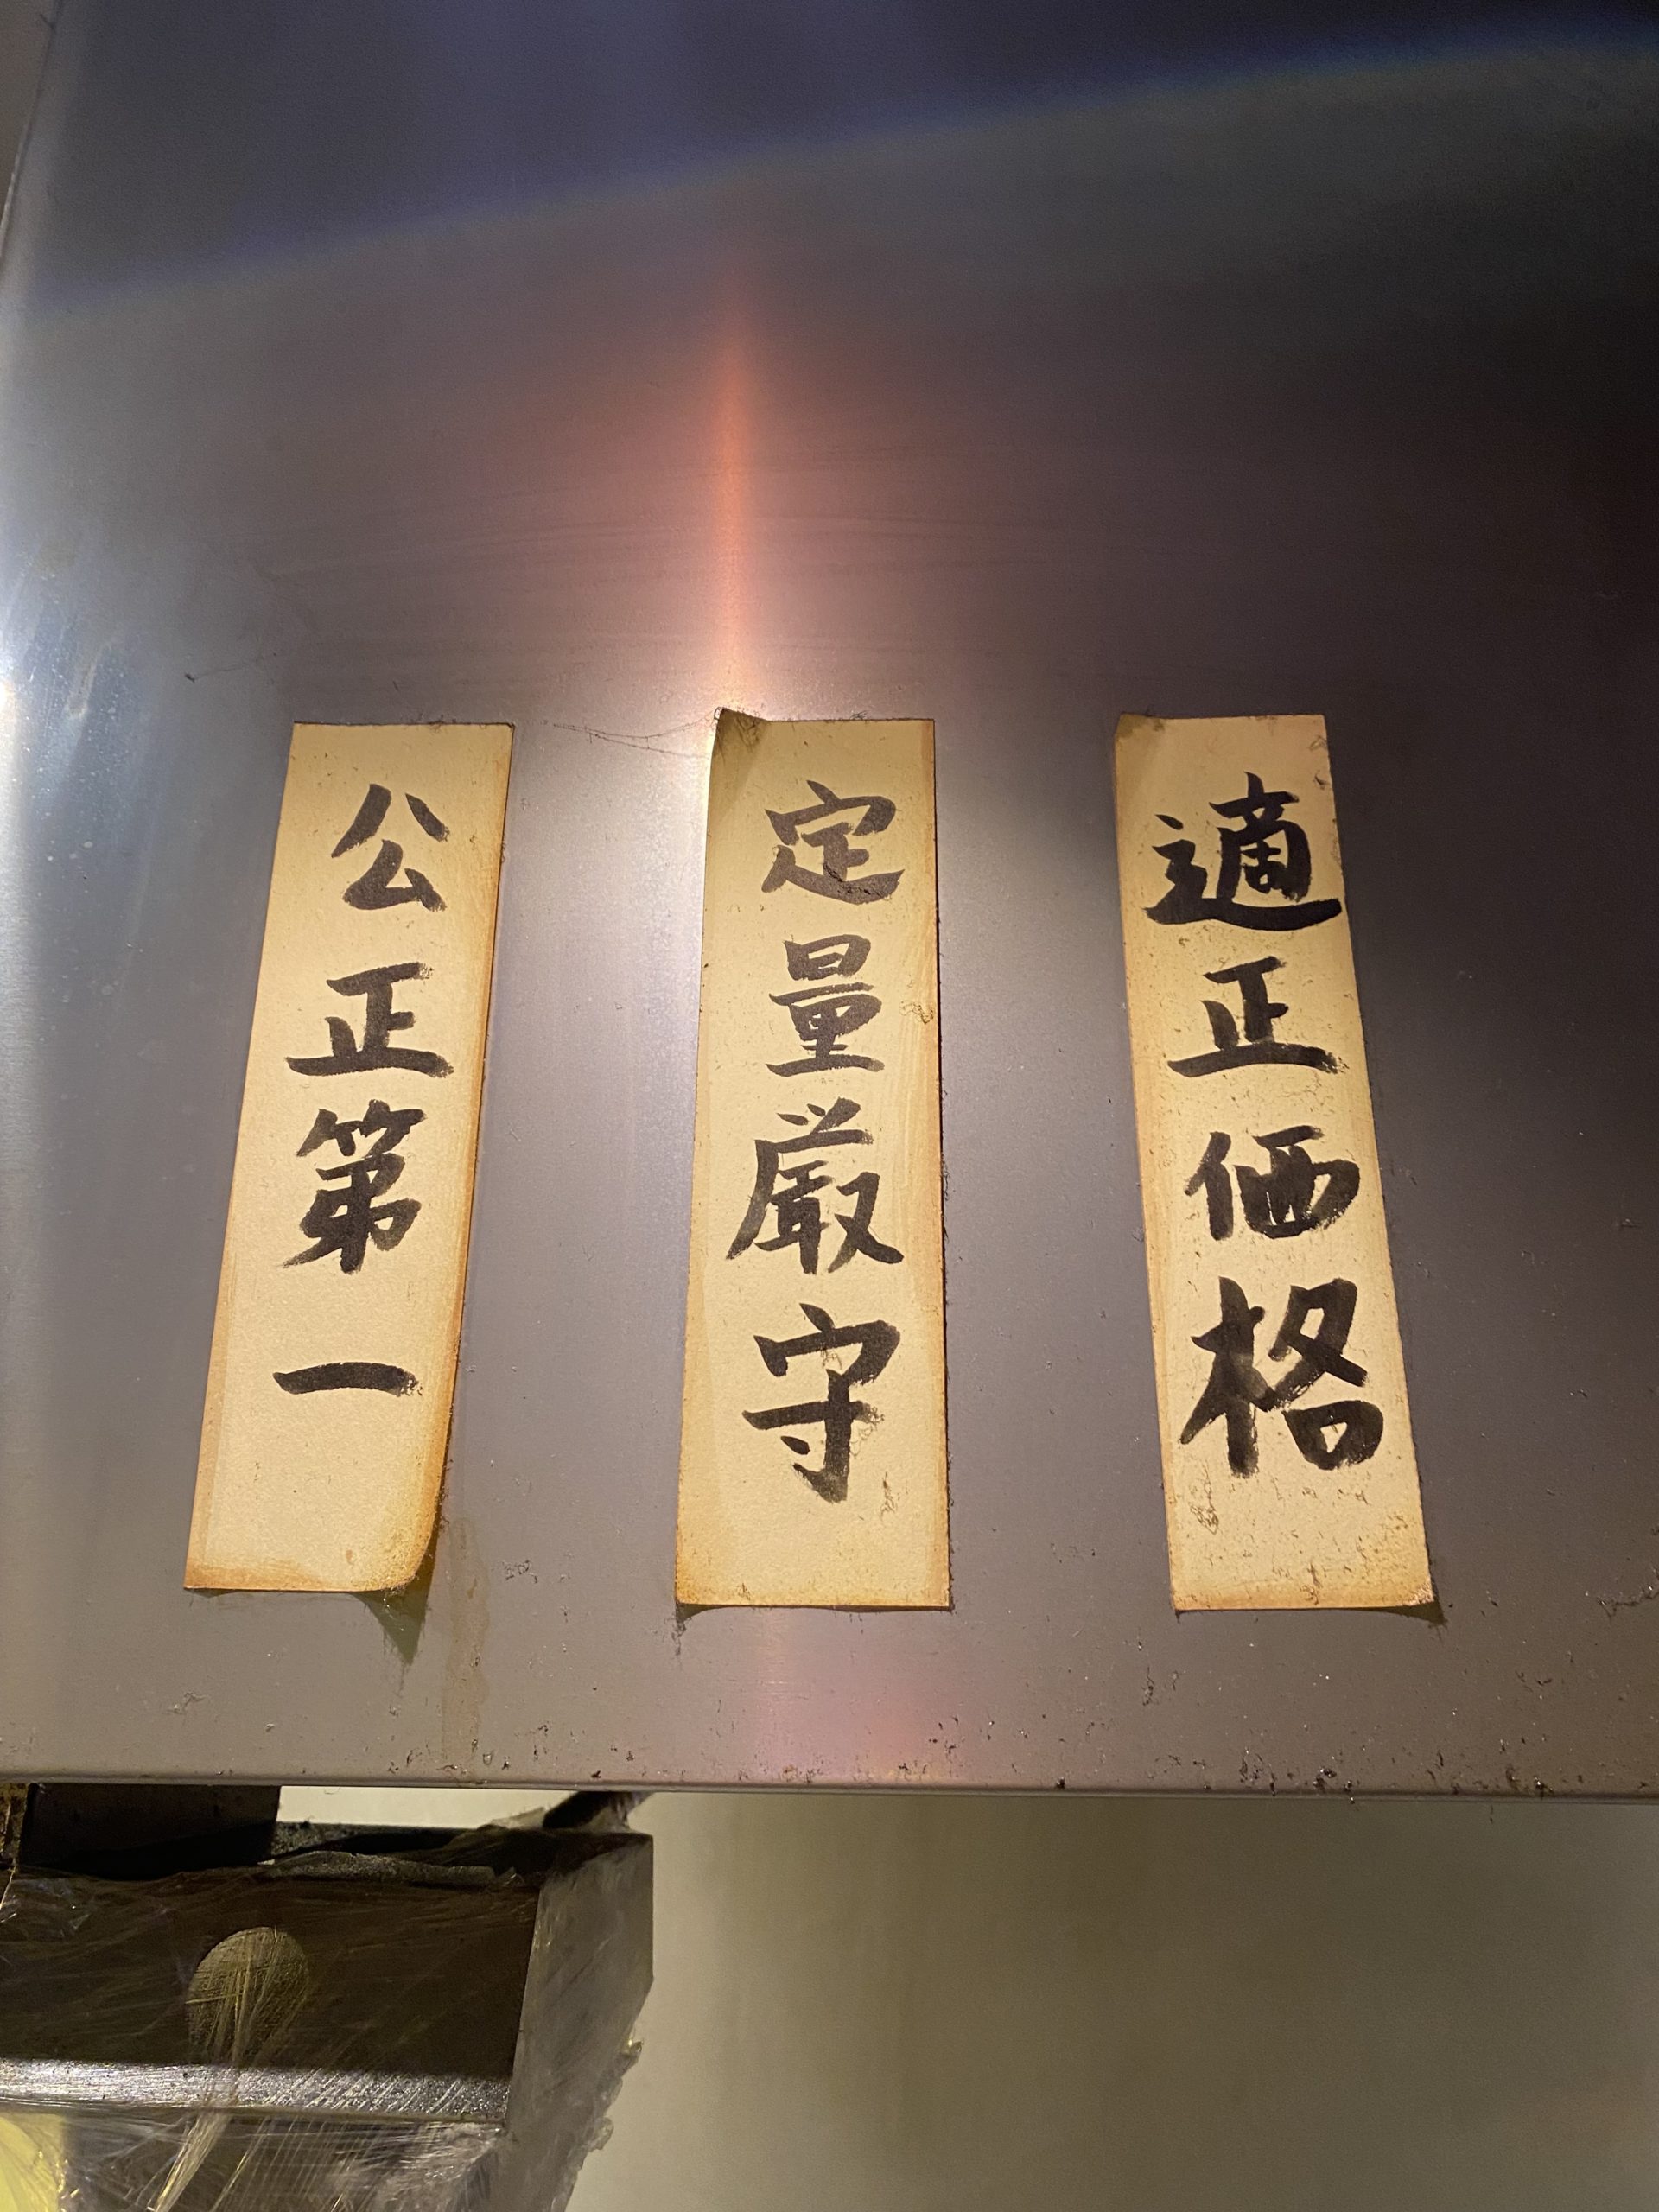 適正価格
定量厳守
公正第一